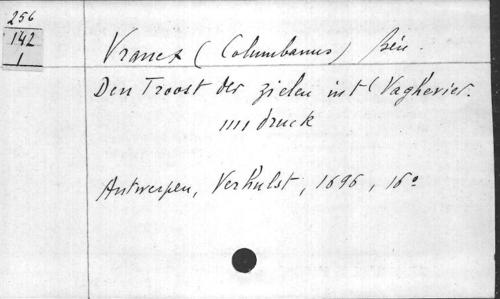 256
142
1
Vrancx (Columbanus) Ben.
Den Troost der zielen in 't Vaghevier.
IIII druck
Antwerpen, Verhulst, 1696, 16°